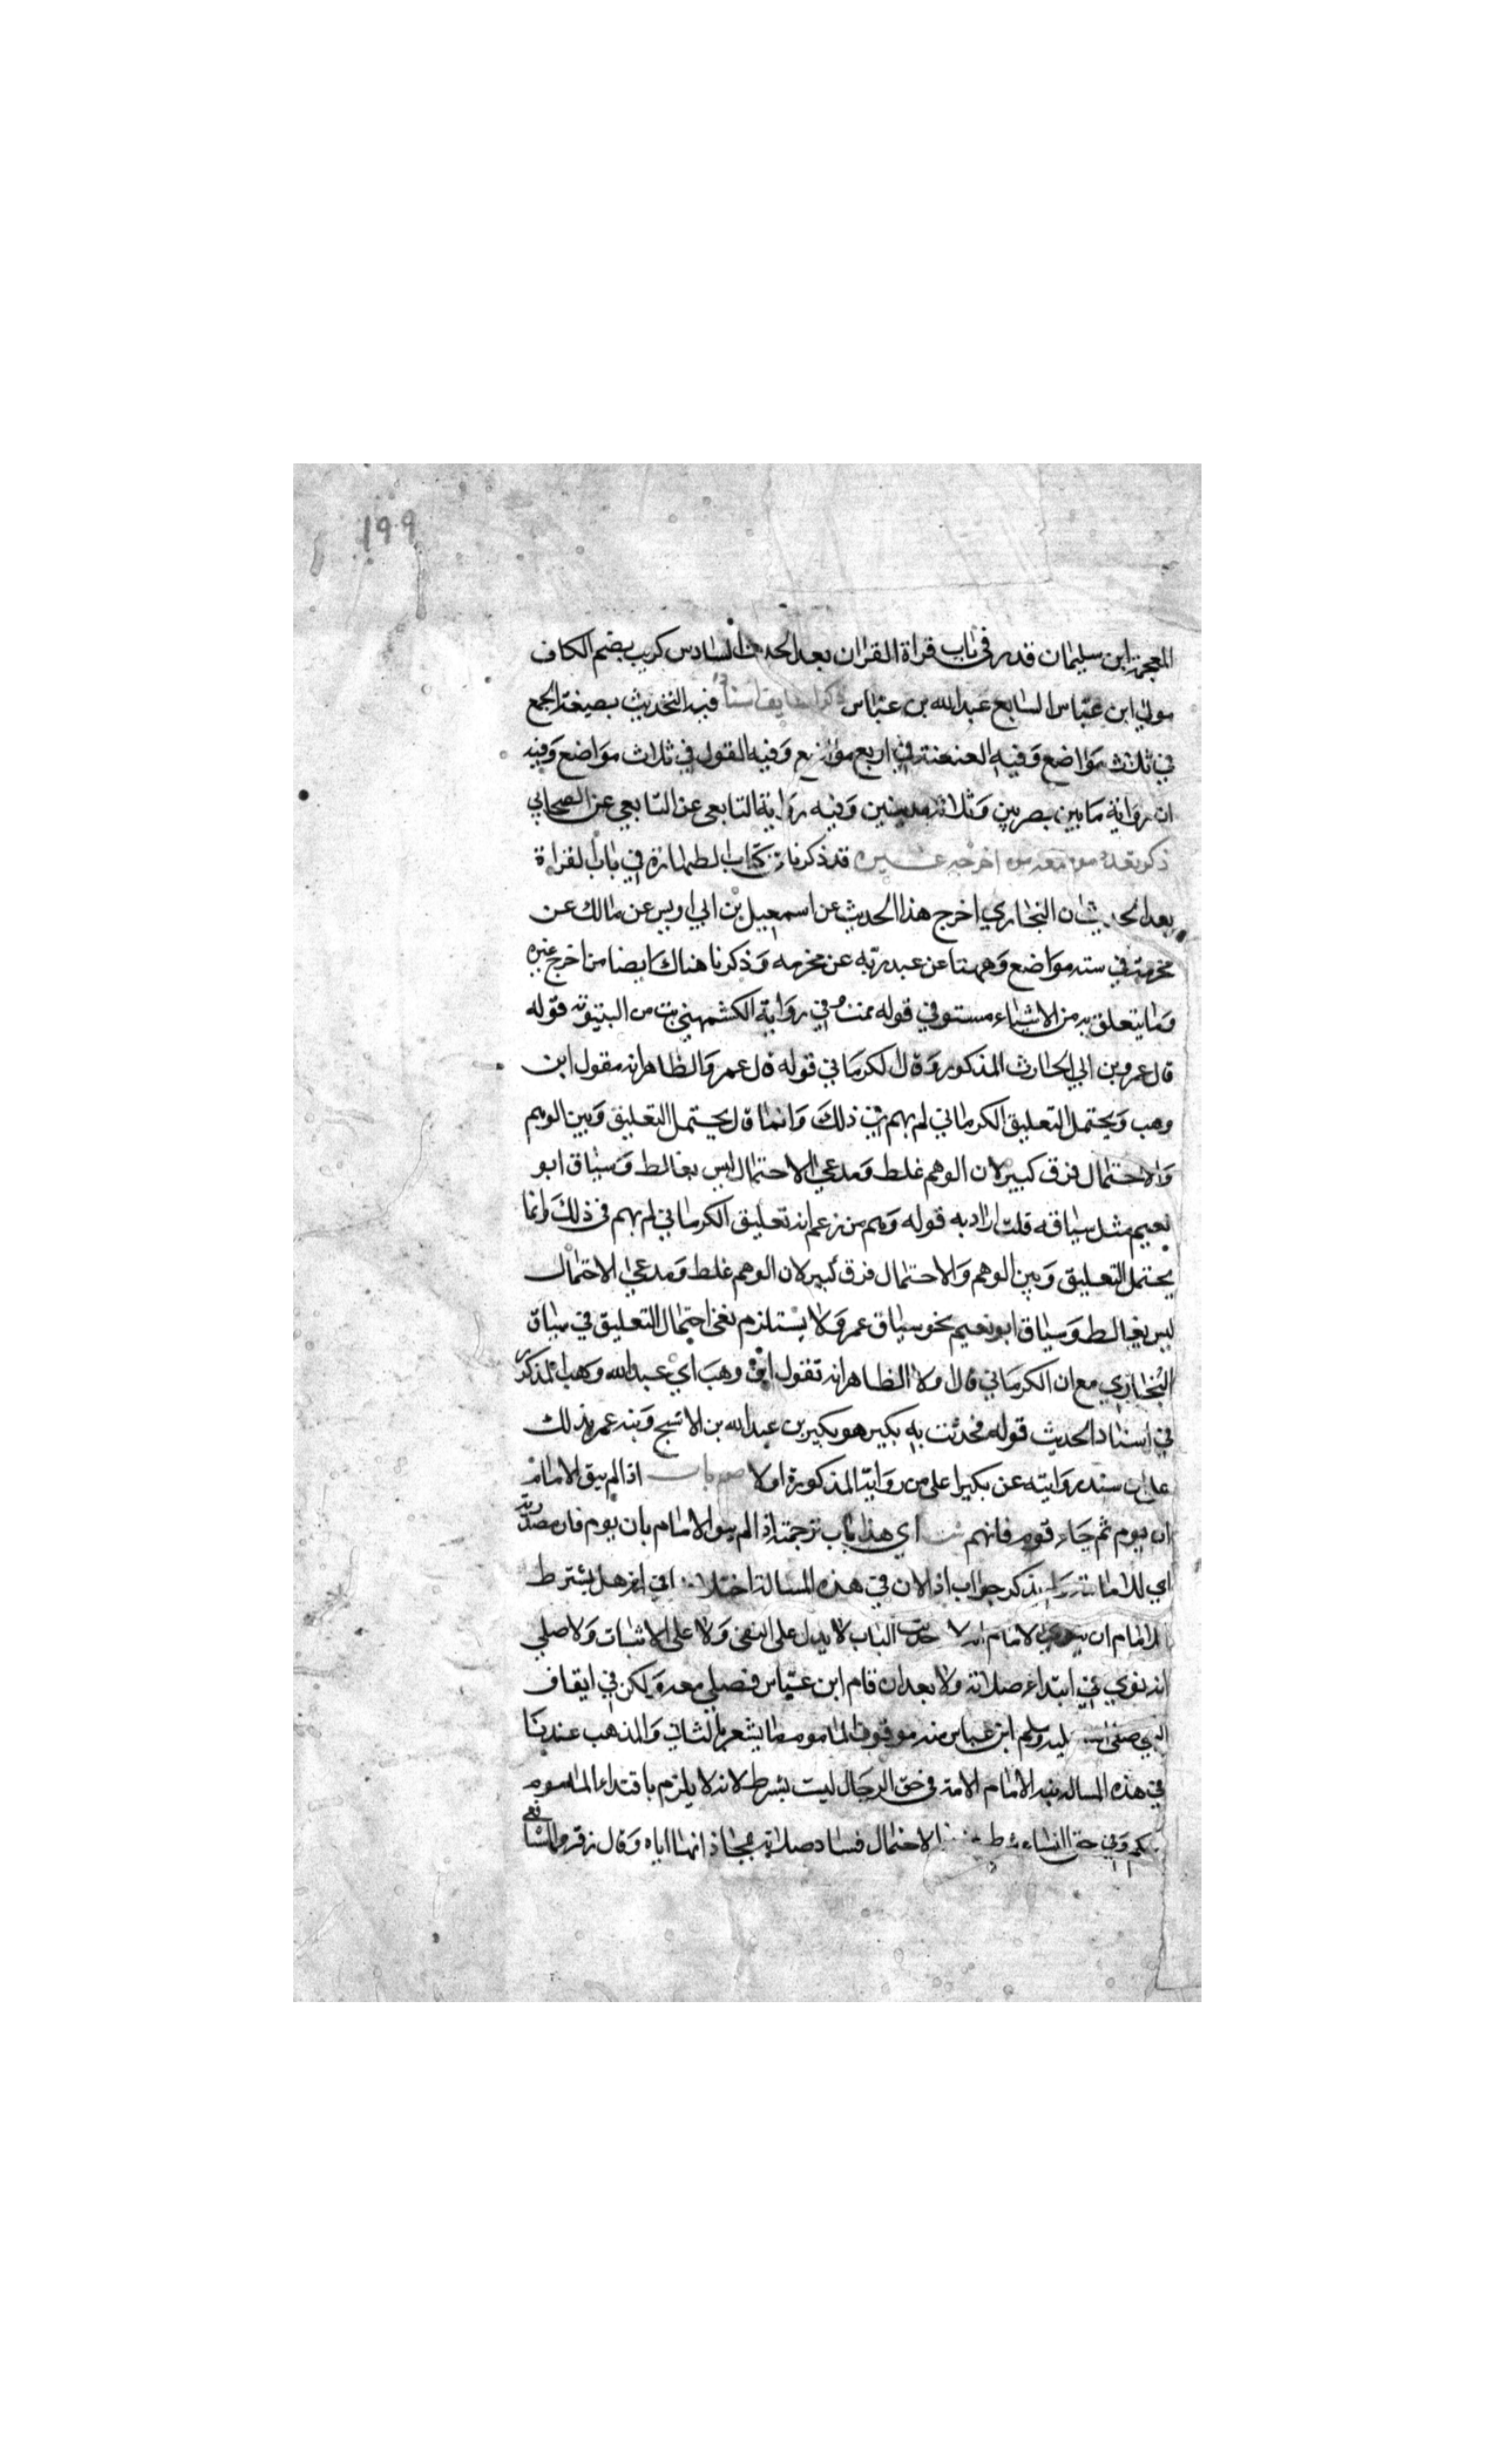 199
المعجمة ابن سليمان قد مر في باب قراة القران بعد الحدث السادس كريب بضم الكاف
مولي ابن عباس السابع عبد الله بن عباس ذكر لطايف اسناده فيه التحديث بصيغة الجمع
في ثلاث مواضع وفيه العنعنة في اربع مواضع وفيه القول في ثلاث مواضع وفيه
ان رواية مابين بصريين وثلاثة مدينين وفيه رواية التابعي عن التابعي عن الصحابي
ذكر تعدد موضعه ومن اخرجه غيره قد ذكرنا في كتاب الطهارة في باب القراة
بعد الحديث ان البخاري اخرج هذا الحديث عن اسمعيل بن ابي اويس عن مالك عن
مخرمة في ستة مواضع وههنا عن عبد ربه عن مخرمه وذكرنا هناك ايضا من اخرج غيره
وما يتعلق به من الاشياء مستوفي قوله نمت وفي رواية الكشمهني بت من البيتوته قوله
قال عمرو بن ابي الحارث المذكور وقال الكرماني قوله قال عمر والظاهر انه مقول ابن
وهب ويحتمل التعليق الكرماني لم يهم في ذلك وانما قال يحتمل التعليق وبين الوهم
والاحتمال فرق كبير لان الوهم غلط ومدعي الاحتمال ليس بغالط وسياق ابو
نعيم مثل سياقه قلت اراد به قوله وهم من زعم انه تعليق الكرماني لم يهم في ذلك وانما
يحتمل التعليق وبين الوهم والاحتمال فرق كبير لان الوهم غلط ومدعي الاحتمال
ليس بغالط وسياق ابو نعيم نحو سياق عمر ولا يستلزم نفي احتمال التعليق في سياق
البخاري مع ان الكرماني قال اولا الظاهر انه تقول ابن وهب اي عبد الله وهب المذكور
في اسناد الحديث قوله فحدثت به بكير هو بكير بن عبد الله بن الاشج ونبه عمر بذلك
علي سنده روايته عن بكير اعلي من روايته المذكورة اولا ص باب اذا لم ينو الامام
ان يوم ثم جاء قوم فامهم ش اي هذا باب ترجمته اذا لم ينو الامام بان يوم فان مصدرية
اي للامامة ولم يذكر جواب اذا لان في هذه المسالة اختلاف في انه هل يشترط
للامام ان ينوي الامام ام لا حديث الباب لا يدل علي النفي ولا علي الاثبات ولا صلي
انه نوي في ابتداء صلاته ولا بعد ان قام ابن عباس فصلي معه ولكن في ايقاف
النبي صلي الله عليه وسلم ابن عباس منه موقوف الماموم ما يشعر بالثاني والمذهب عندنا
في هذه المساله نية الامام الامة في حق الرجال ليست بشرط لانه لا يلزم باقتداء الماموم
حكم وفي حق النساء شرط الاحتمال فساد صلاته بمحاذاتها اياه وقال زفر والشافعي